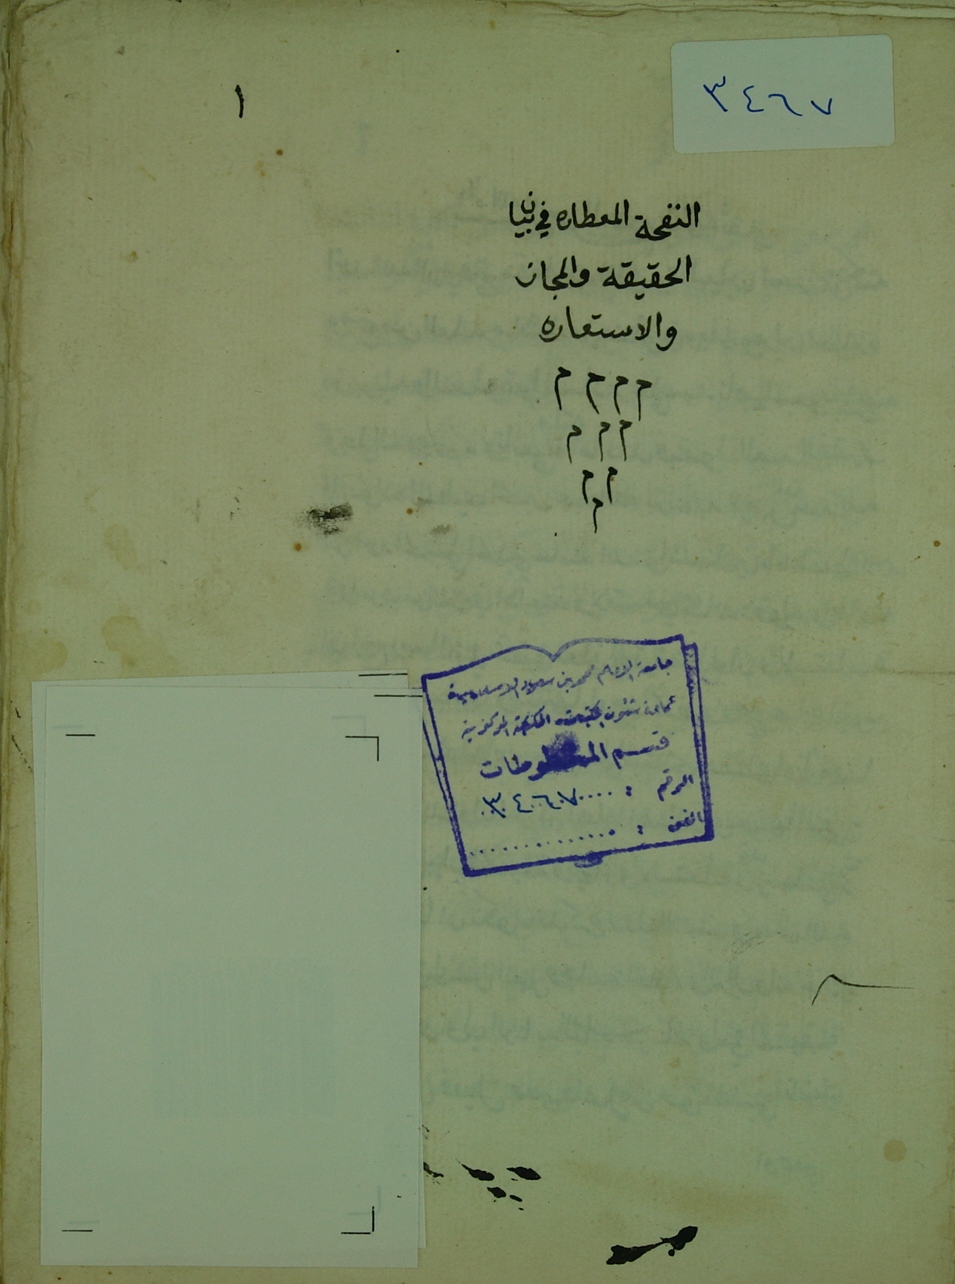 ٣٤٦٧
١
النفحة المعطاره في بيان
الحقيقة والمجاز
والاستعاره
م م م م
م م م
م م
م
جامعة الإمام محمد بن سعود الإسلامية
عمادة شئون المكتبات - المكتبة المركزية
قسم المخطوطات
الرقم : ٣٤٦٧
الفن :